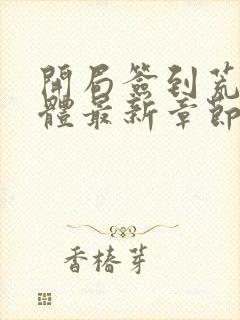 開局簽到荒
體最新章節
香椿芽